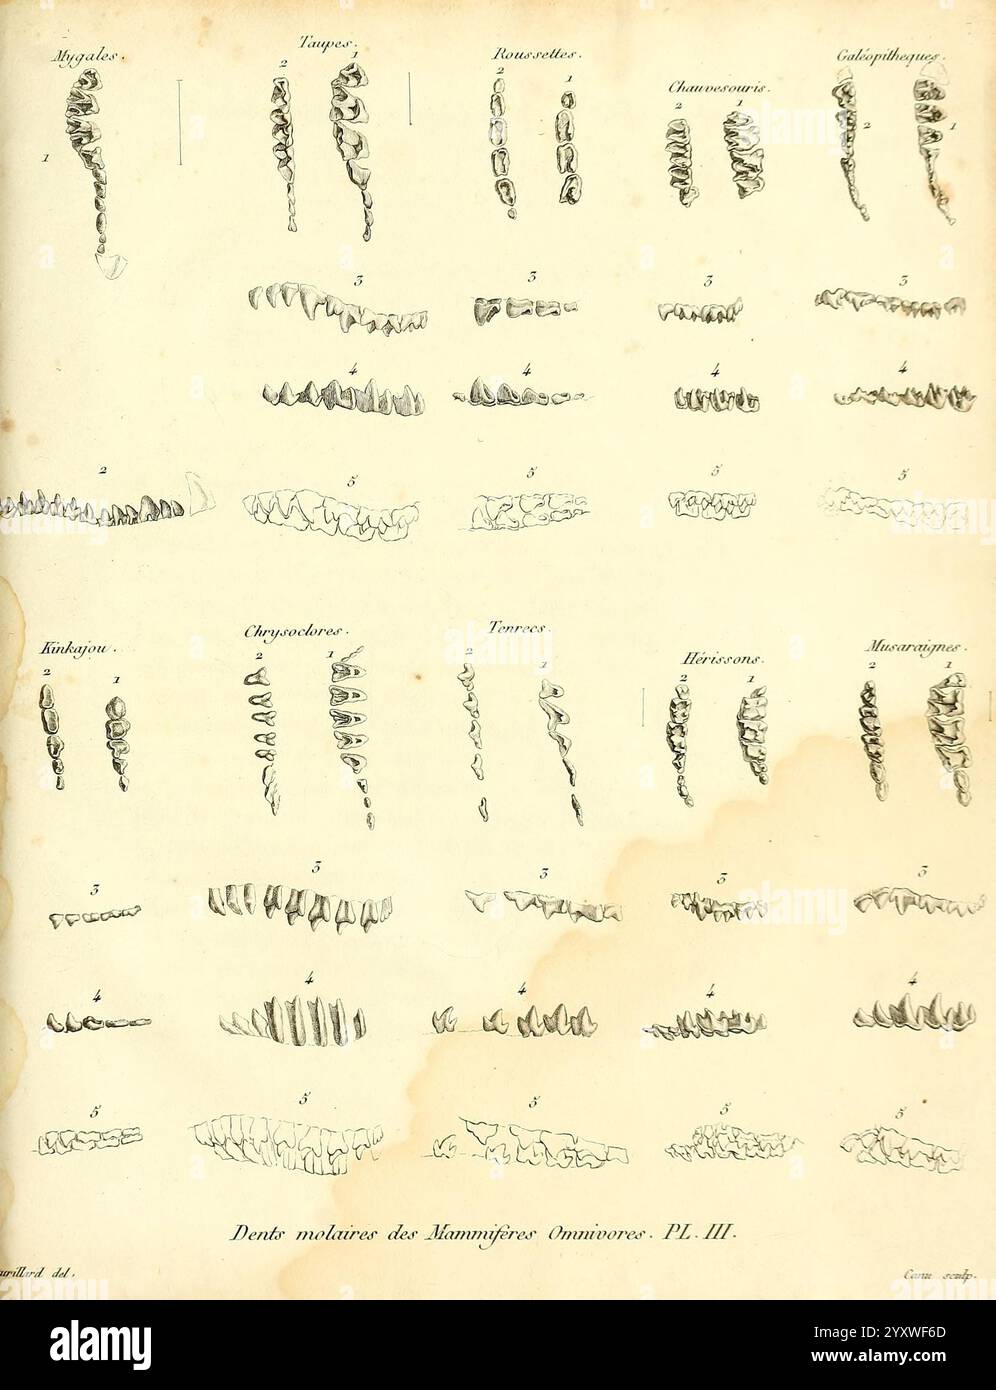 Mygales.
Taupes.
Roussettes.
Chauvesouris.
Galéopithèques.
1
2
1
2
1
2
1
2
1
3
3
3
3
4
4
4
4
2
5
5
5
5
Kinkajou.
Chrysoclores.
Tenrecs.
Hérissons.
Musaraignes.
2
1
2
1
2
1
2
1
2
1
3
3
3
3
3
4
4
4
4
4
5
5
5
5
5
Dents molaires des Mammifères Omnivores. PL. III.
urillard del.
Canu sculp.
alamy
Image ID: 2YXWF6D
www.alamy.com